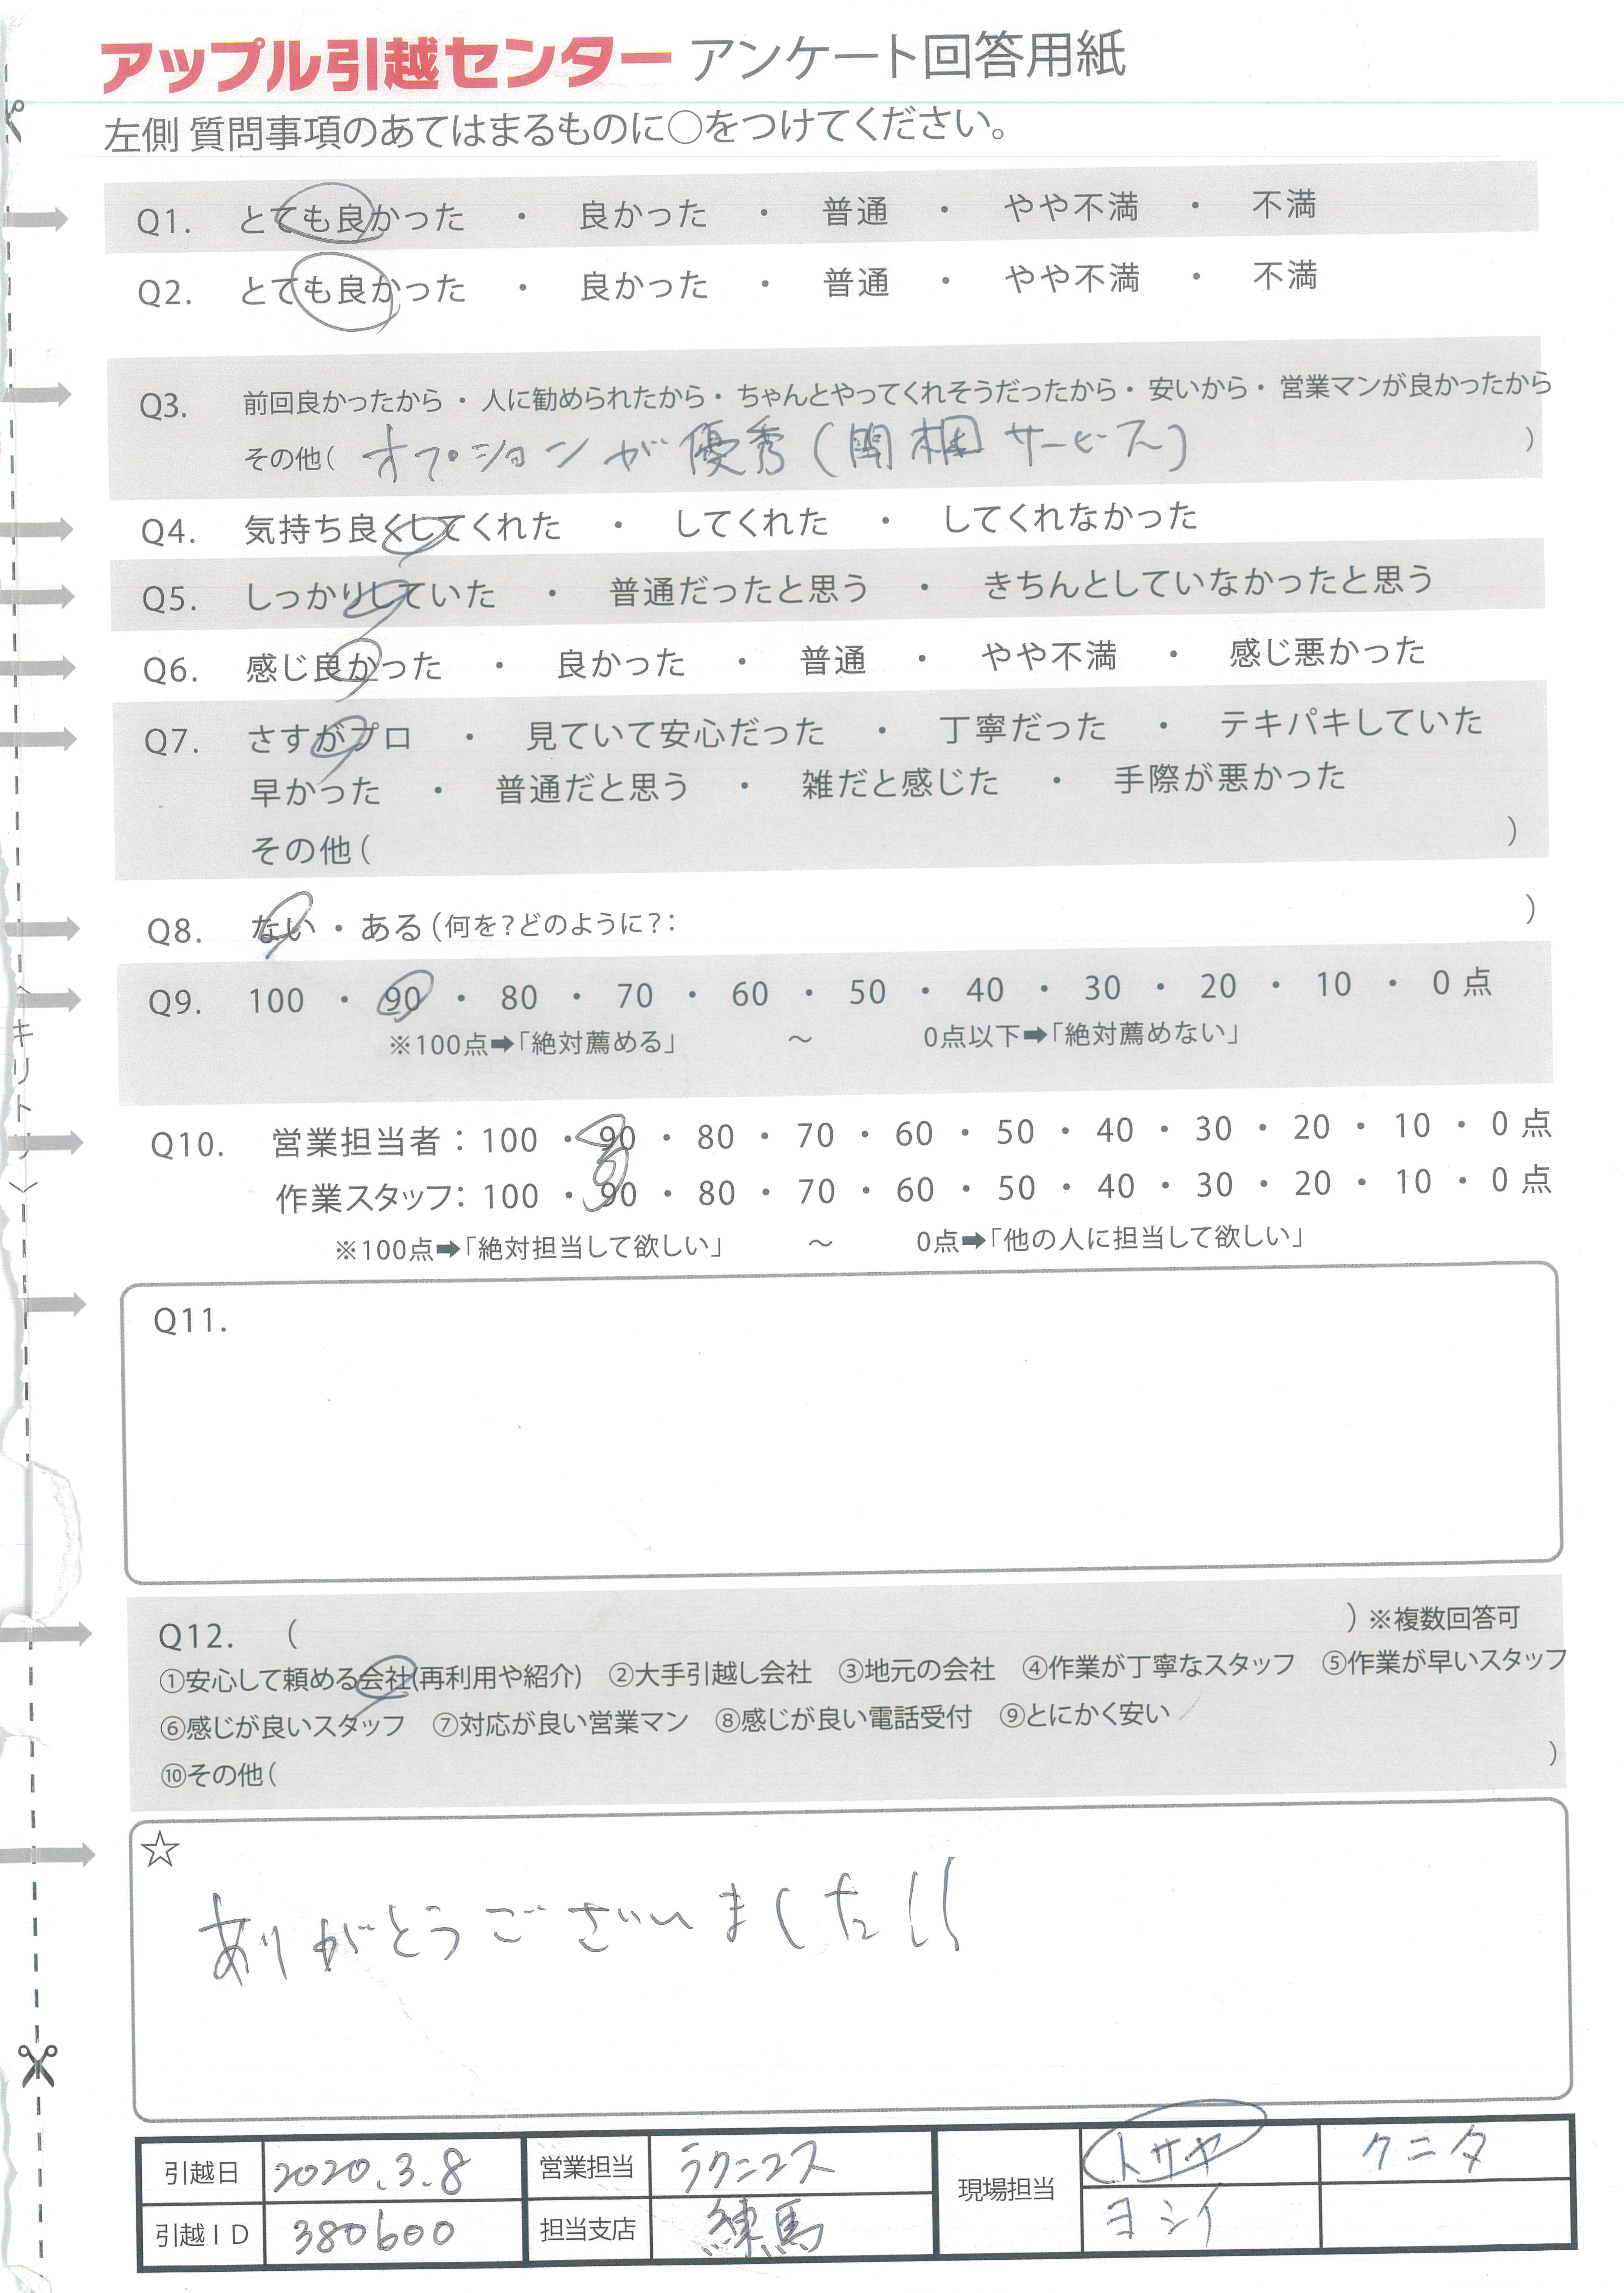 アップル引越センター アンケート回答用紙
左側 質問事項のあてはまるものに○をつけてください。
Q1. とても良かった ・ 良かった ・ 普通 ・ やや不満 ・ 不満
Q2. とても良かった ・ 良かった ・ 普通 ・ やや不満 ・ 不満
Q3. 前回良かったから・人に勧められたから・ちゃんとやってくれそうだったから・安いから・営業マンが良かったから
その他( オプションが優秀(開梱サービス) )
Q4. 気持ち良くしてくれた ・ してくれた ・ してくれなかった
Q5. しっかりしていた ・ 普通だったと思う ・ きちんとしていなかったと思う
Q6. 感じ良かった ・ 良かった ・ 普通 ・ やや不満 ・ 感じ悪かった
Q7. さすがプロ ・ 見ていて安心だった ・ 丁寧だった ・ テキパキしていた
早かった ・ 普通だと思う ・ 雑だと感じた ・ 手際が悪かった
その他( )
Q8. ない・ある(何を?どのように?: )
Q9. 100 ・ 90 ・ 80 ・ 70 ・ 60 ・ 50 ・ 40 ・ 30 ・ 20 ・ 10 ・ 0 点
※100点➡「絶対薦める」 〜 0点以下➡「絶対薦めない」
Q10. 営業担当者:100 ・ 90 ・ 80 ・ 70 ・ 60 ・ 50 ・ 40 ・ 30 ・ 20 ・ 10 ・ 0 点
作業スタッフ:100 ・ 90 ・ 80 ・ 70 ・ 60 ・ 50 ・ 40 ・ 30 ・ 20 ・ 10 ・ 0 点
※100点➡「絶対担当して欲しい」 〜 0点➡「他の人に担当して欲しい」
Q11.
Q12. ( )※複数回答可
①安心して頼める会社(再利用や紹介) ②大手引越し会社 ③地元の会社 ④作業が丁寧なスタッフ ⑤作業が早いスタッフ
⑥感じが良いスタッフ ⑦対応が良い営業マン ⑧感じが良い電話受付 ⑨とにかく安い
⑩その他( )
☆
ありがとうございました!!
引越日 2020.3.8 営業担当 ラクニコス 現場担当 トサヤ クニタ
引越ID 380600 担当支店 練馬 ヨシイ
〈キリトリ〉